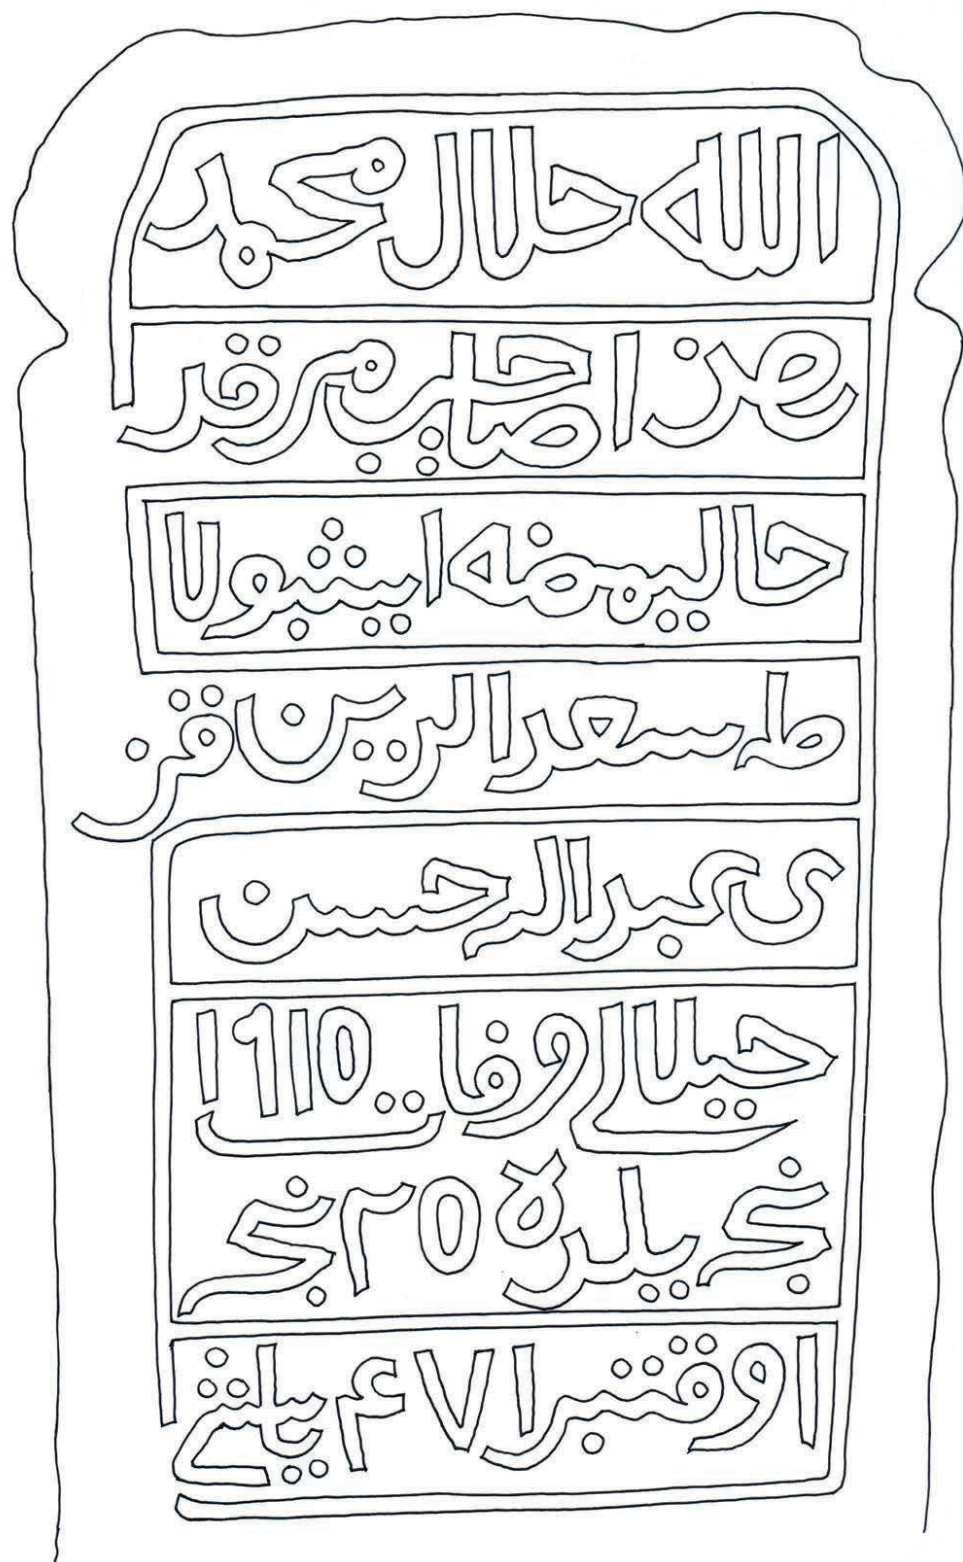 الله حلال محمد
صاحيب مرقد
حاليمضه ايشبولا
ط سعد الدين قز
ى عبد الرحسن
حيلالى وفات ١٩١٥
نجى يلده ٢٥ نجى
اوقتبر ا ۴٧ ياشے